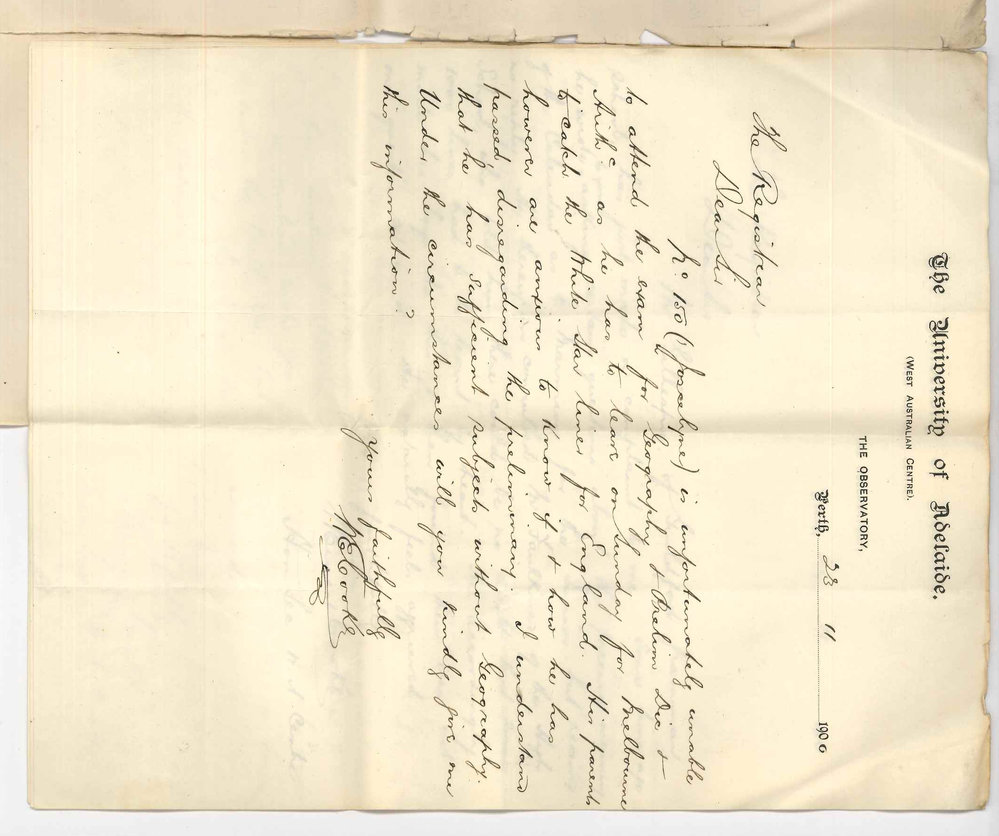 The University of Adelaide.
(WEST AUSTRALIAN CENTRE).
THE OBSERVATORY,
Perth, 23 11 1906
The Registrar
Dear Sir
No 150 (Joscelyne) is unfortunately unable
to attend the exam for Geography & Prelim Dic &
Arithc as he has to leave on Sunday for Melbourne
to catch the White Star liner for England. His parents
however are anxious to know if & how he has
passed, disregarding the preliminary. I understand
that he has sufficient subjects without Geography.
Under the circumstances will you kindly give me
this information?
Yours faithfully
W E Cooke